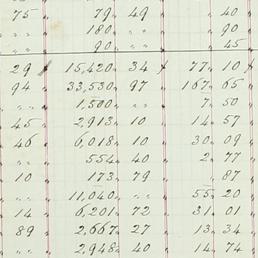 75 79 49 40
" 180 " " 90
" 90 " " 45
29 15,420 34 77 10
94 33,530 97 167 65
" " 1,500 " " 7 50
45 2,913 10 14 57
46 6,018 10 30 09
" " 554 40 2 77
10 173 79 87
" " 11,040 " " 55 20
14 6,201 72 31 01
89 2,667 27 13 34
" " 2,948 40 14 74